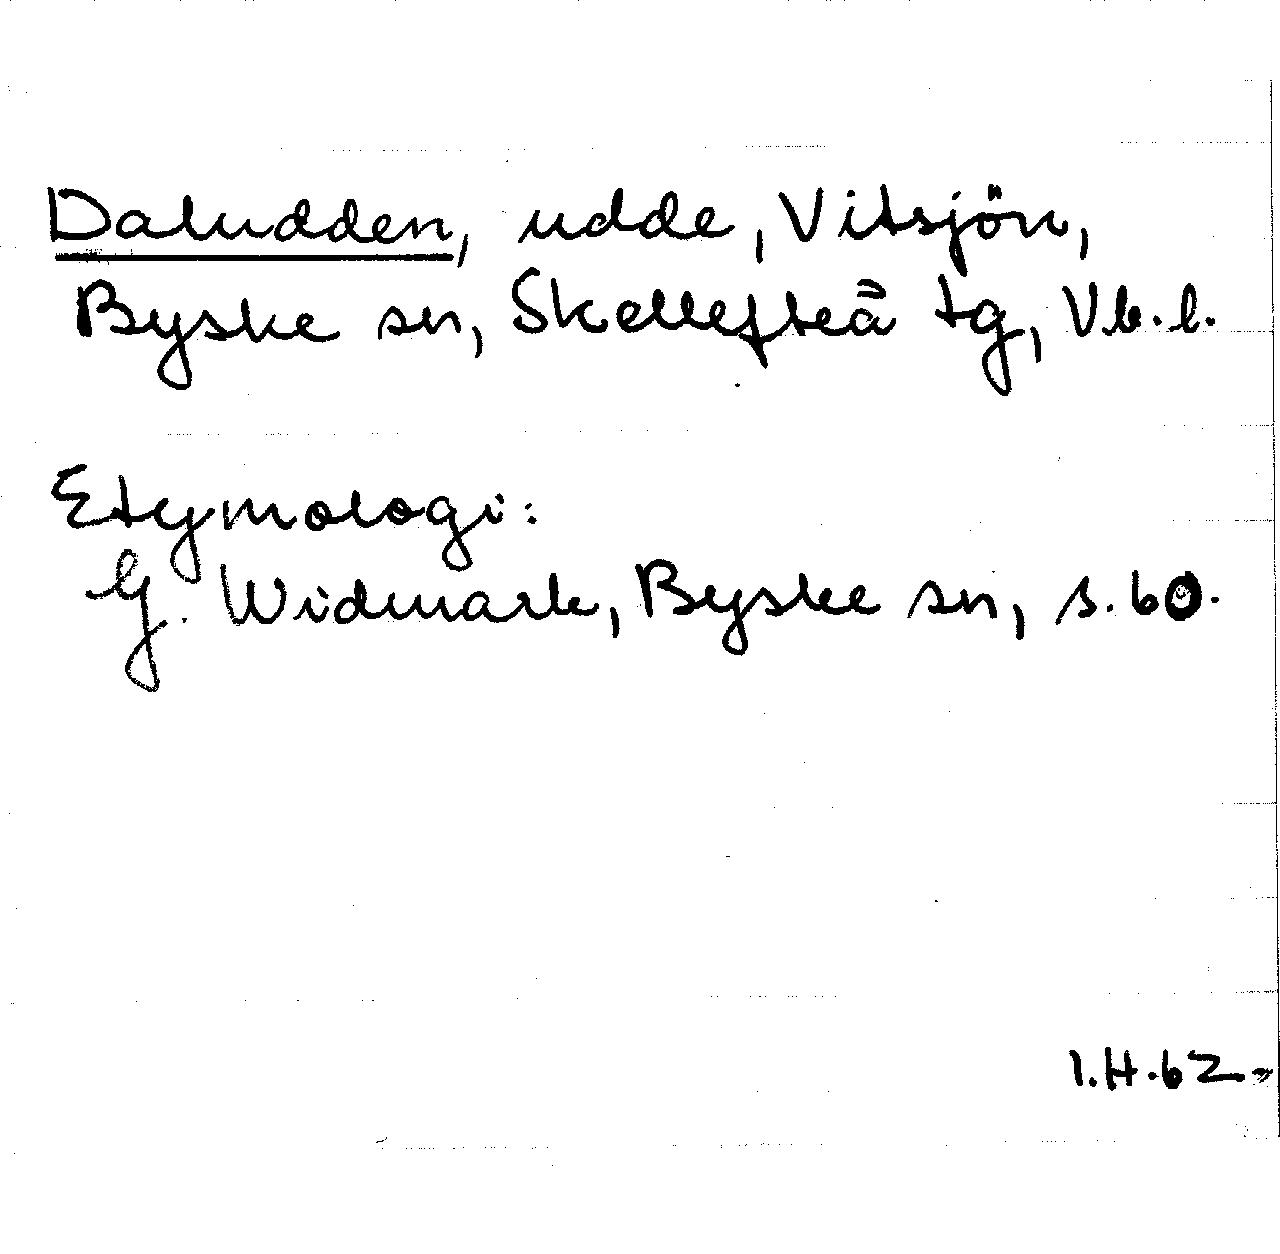 Daludden, udde, Vitsjön,
Byske sn, Skellefteå tg, Vb.l.
Etymologi:
G. Widmark, Byske sn, s. 60.
I.H.62.